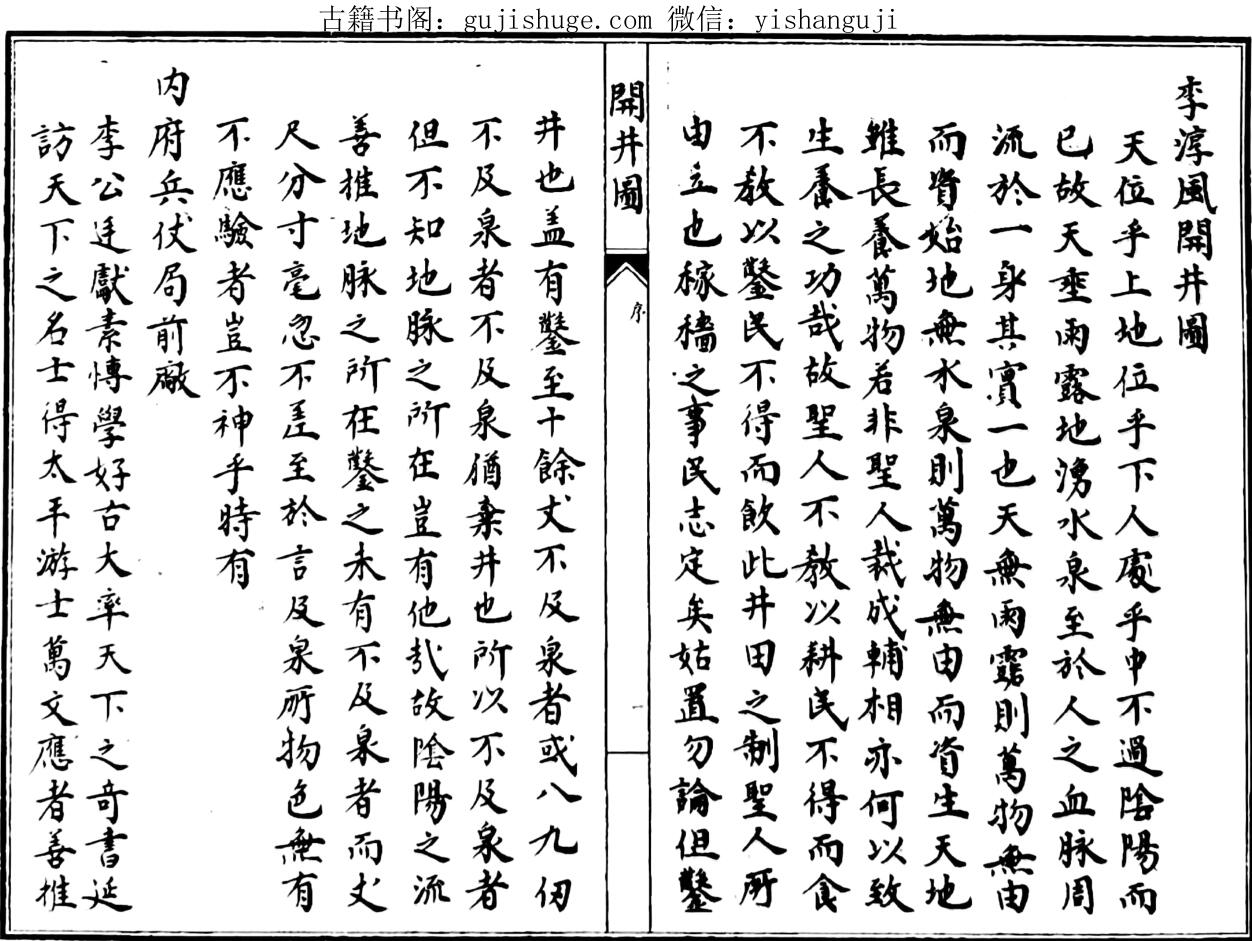 古籍书阁：gujishuge.com 微信：yishanguji
李淳風開井圖
天位乎上地位乎下人處乎中不過陰陽而
已故天垂雨露地湧水泉至於人之血脉周
流於一身其實一也天無雨露則萬物無由
而資始地無水泉則萬物無由而資生天地
雖長養萬物若非聖人裁成輔相亦何以致
生養之功哉故聖人不教以耕民不得而食
不教以鑿民不得而飲此井田之制聖人所
由立也稼穡之事民志定矣姑置勿論但鑿
開井圖
序
一
井也盖有鑿至十餘丈不及泉者或八九仞
不及泉者不及泉猶棄井也所以不及泉者
但不知地脉之所在豈有他哉故陰陽之流
善推地脉之所在鑿之未有不及泉者而丈
尺分寸毫忽不差至於言及泉所物色無有
不應驗者豈不神乎時有
内府兵仗局前廠
李公廷獻素博學好古大率天下之奇書延
訪天下之名士得太平游士萬文應者善推